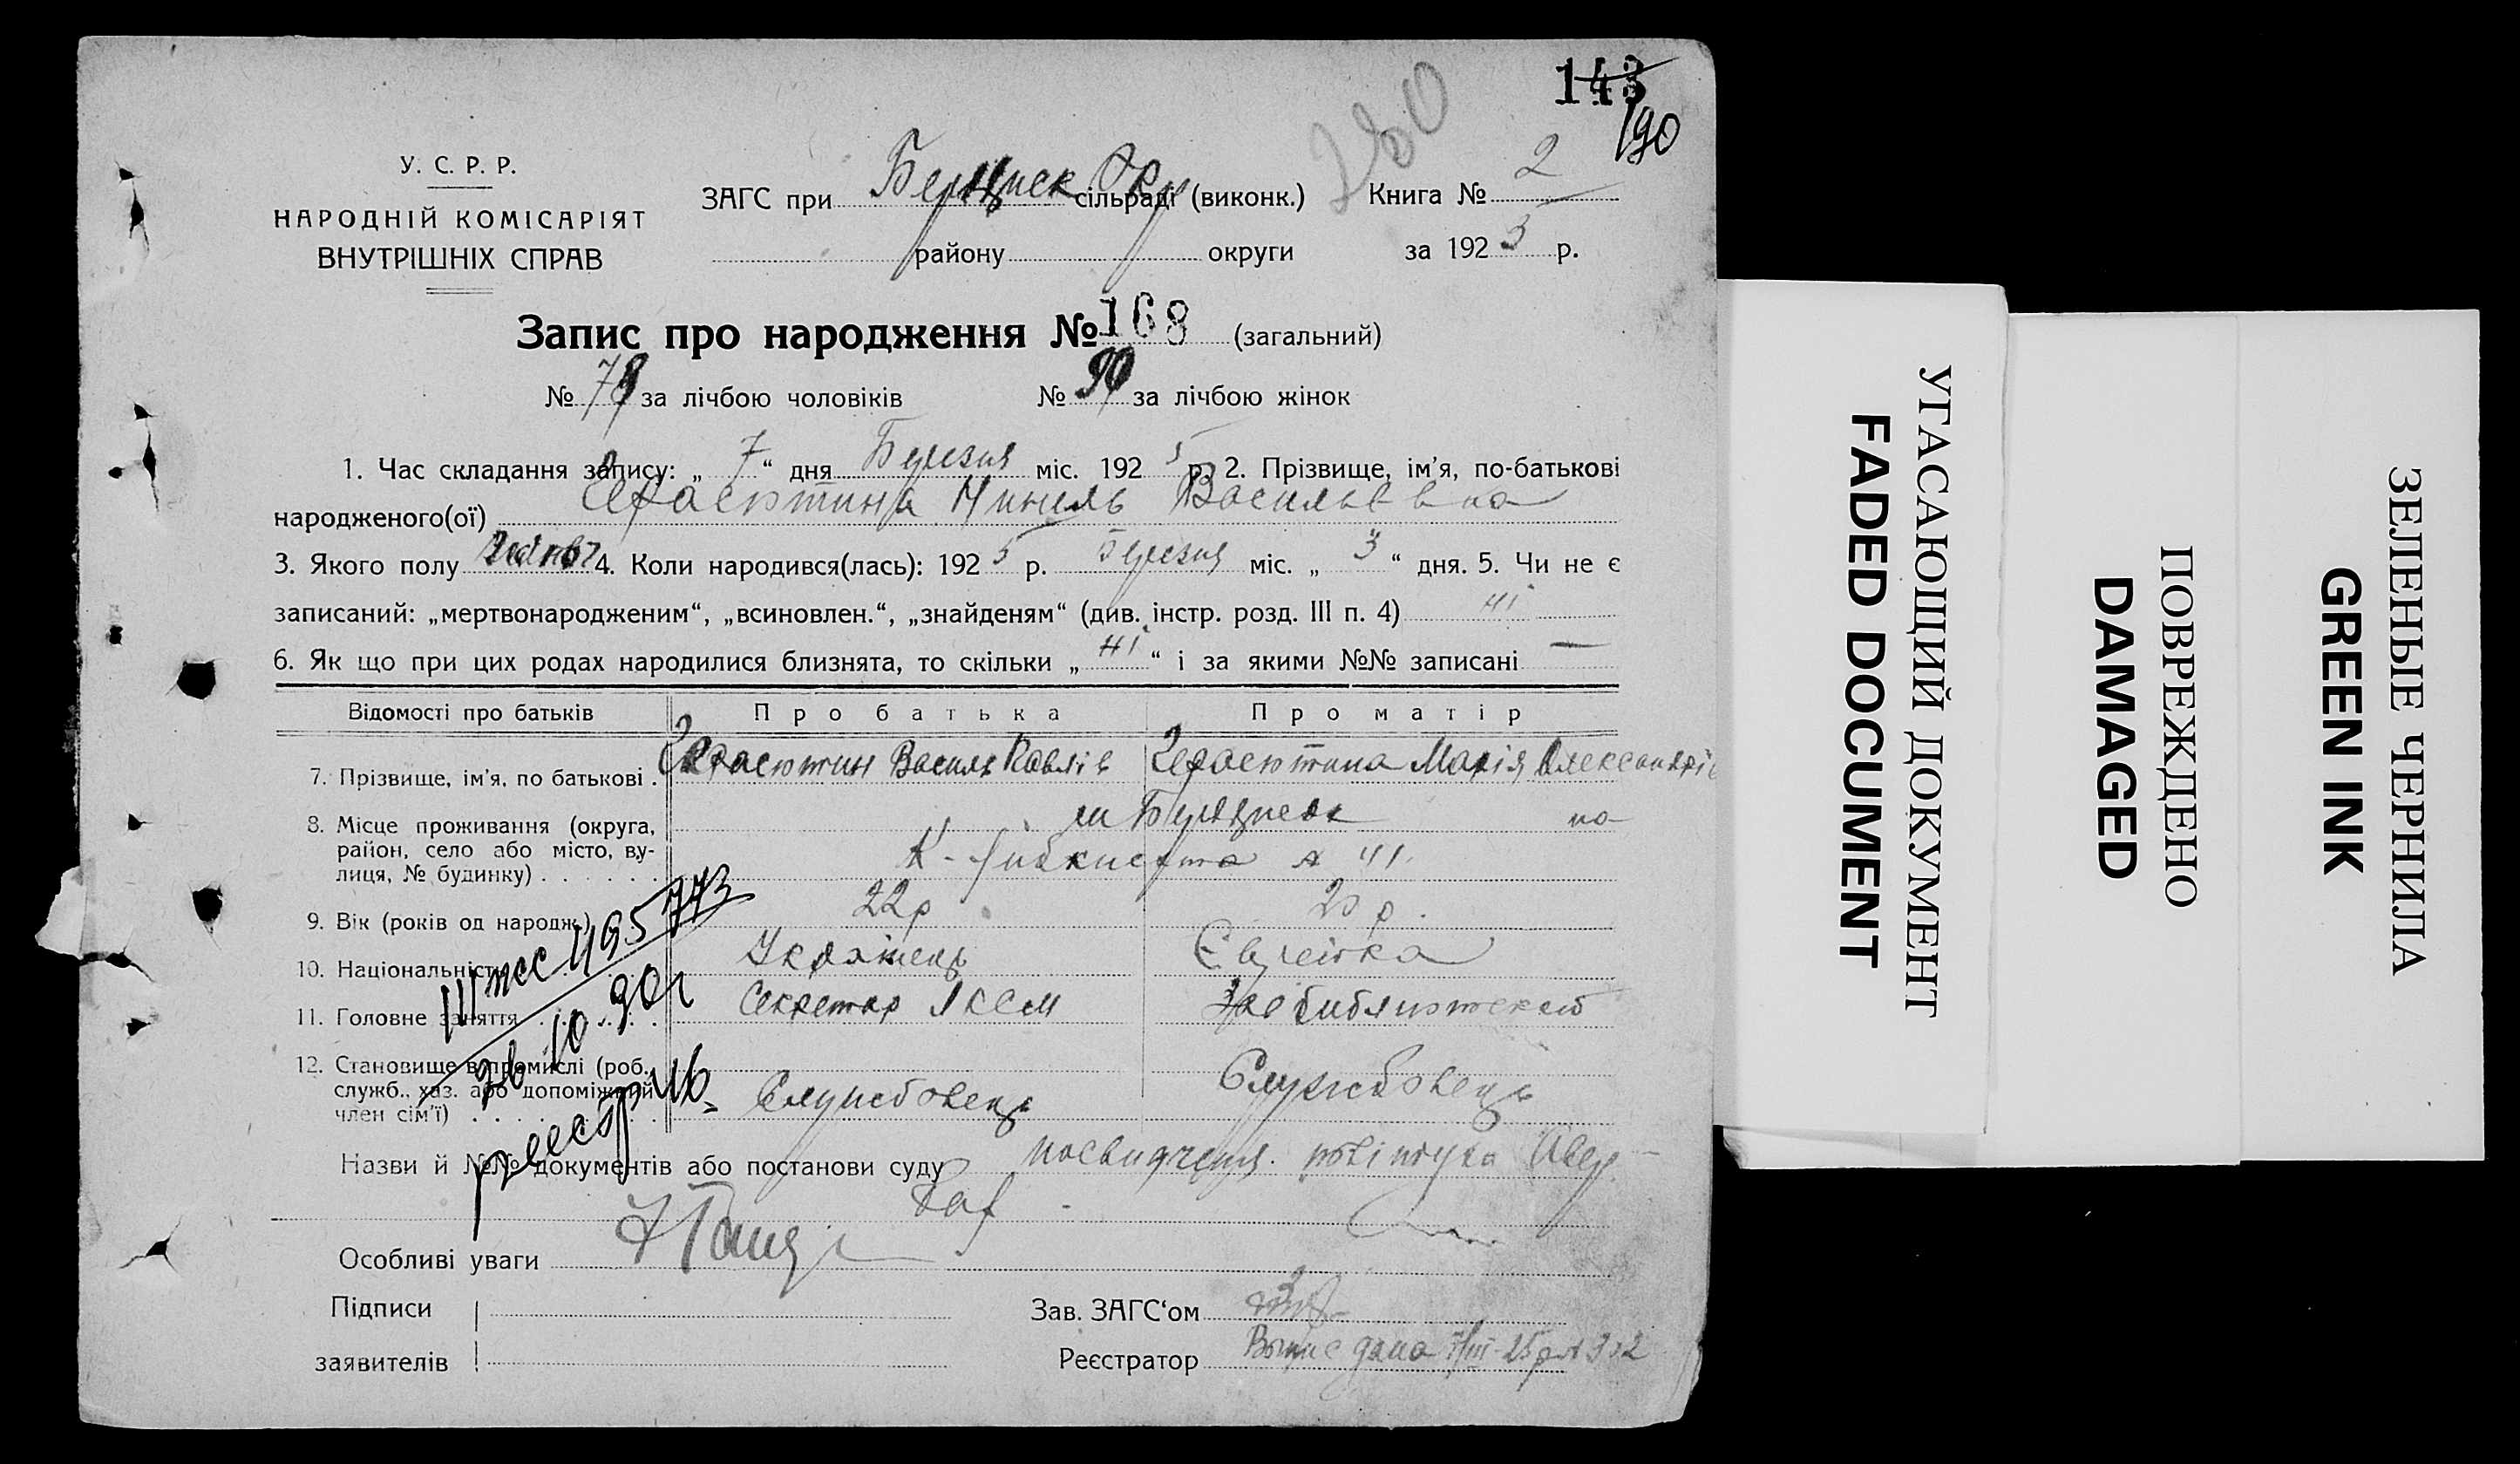 143
190
280
У. С. Р. Р.
НАРОДНІЙ КОМІСАРІЯТ
ВНУТРІШНІХ СПРАВ
ЗАГС при сільраді (виконк.) Книга № 2
району округи за 1925 р.
Запис про народження № 168 (загальний)
№ за лічбою чоловіків № 90 за лічбою жінок
1. Час складання запису: „ 7 “ дня Березня міс. 1925 р. 2. Прізвище, ім’я, по-батькові
народженого(ої) Нинель Васильевна
3. Якого полу 4. Коли народився(лась): 1925 р. Березня міс. „ 3 “ дня. 5. Чи не є
записаний: „мертвонародженим“, „всиновлен.“, „знайденям“ (див. інстр. розд. III п. 4) ні
6. Як що при цих родах народилися близнята, то скільки „ ні “ і за якими №№ записані —
Відомості про батьків Про батька Про матір
7. Прізвище, ім’я, по батькові . Герасютин Василь Павлів Герасютина Марія Олександрів
на
8. Місце проживання (округа,
район, село або місто, ву-
лиця, № будинку) . . . . . . К-Лібкнехта № 41.
9. Вік (років од народж.) 22 р 20 р.
10. Національність Українець Єврейка
11. Головне заняття . . . . . Секретар ЛКСМ Зав библиотекой
12. Становище в промислі (роб.
служб., хаз. або допоміжний
член сім’ї) . . . . . . . . Службовець Службовець
III 495773
26 10 90г
Назви й №№ документів або постанови суду посвидченя
Особливі уваги
Підписи
заявителів
Зав. ЗАГС‘ом
Реєстратор Выпис дана 7/III-25 р № 302
УГАСАЮЩИЙ ДОКУМЕНТ
FADED DOCUMENT
ПОВРЕЖДЕНО
DAMAGED
ЗЕЛЕНЫЕ ЧЕРНИЛА
GREEN INK